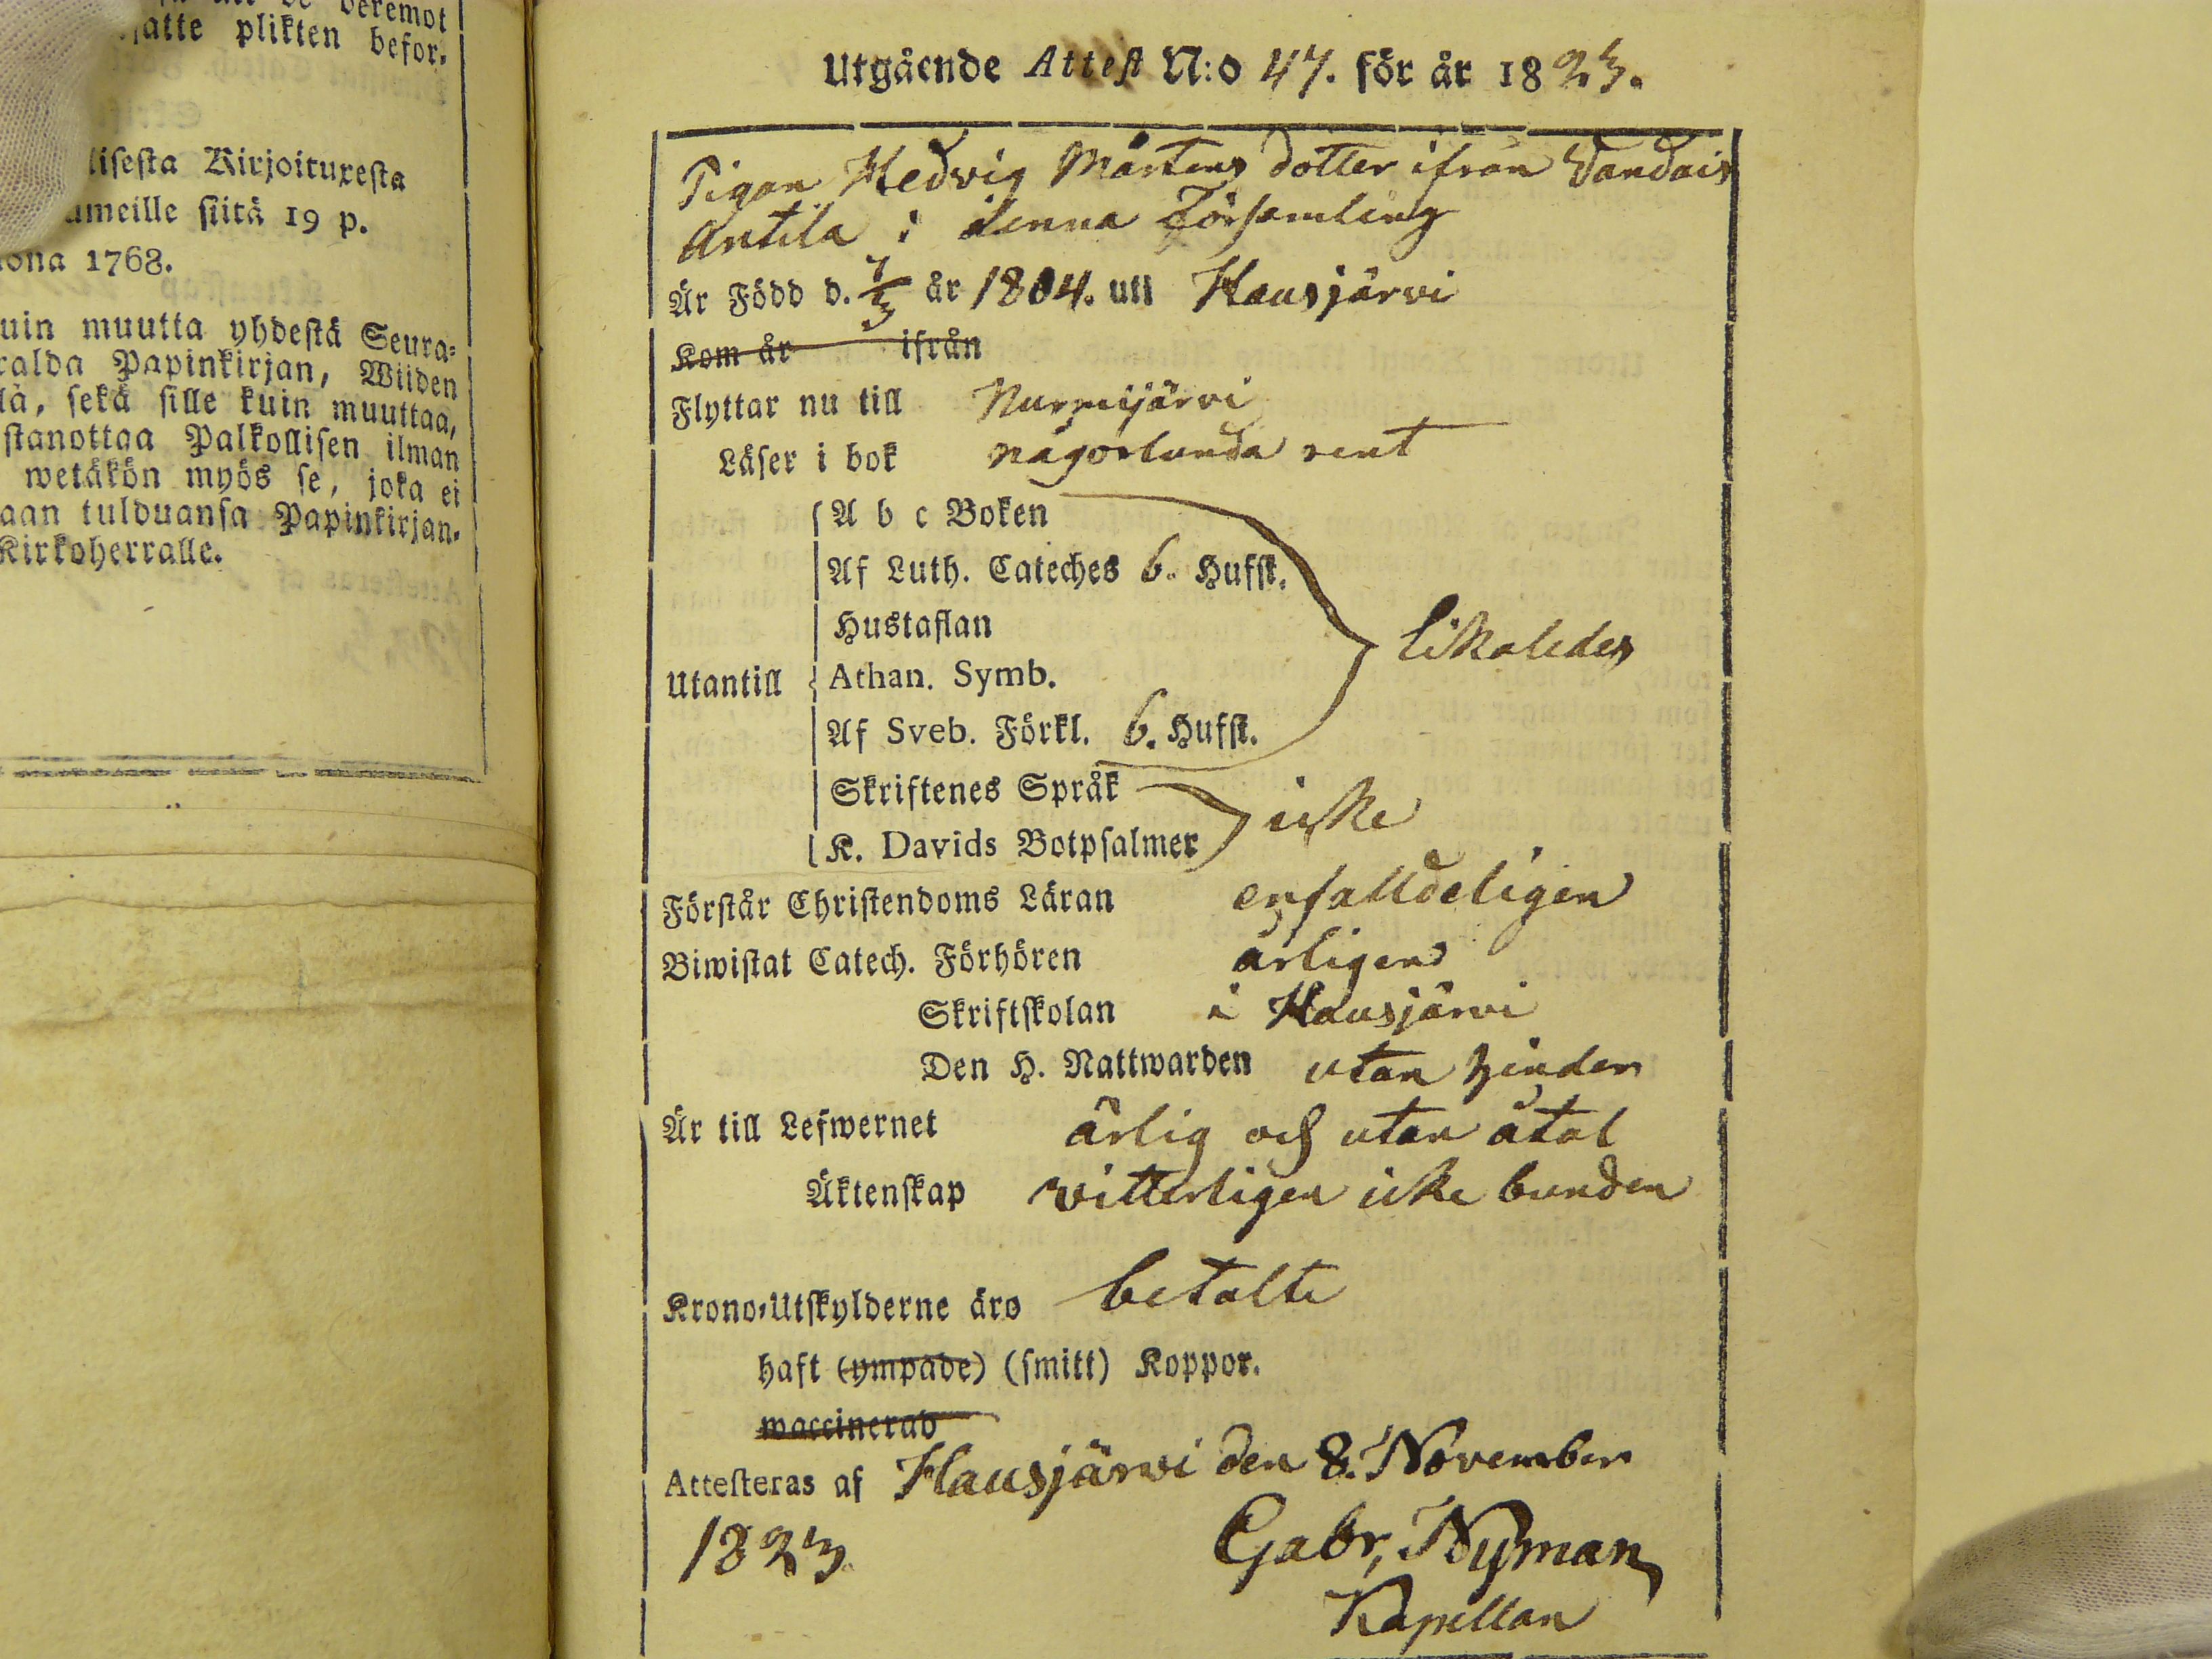 veremot
satte plikten befor-
lisesta Kirjoituxesta
ameille siitä 19 p.
ona 1763.
uin muutta yhdestä Seura-
calda Papinkirjan, Wiiden
lä, sekä sille kuin muuttaa,
stanottaa Palkollisen ilman
wetäkön myös se, joka ei
aan tulduansa Papinkirjan-
Kirkoherralle.
Utgående Attest N:o 47. för år 1823.
Pigan Hedvig Mårtens dotter ifrån Vandais
Antila i denna Församling
Är Född d. 7/3 år 1804. uti Hausjärvi
Kom år ifrån
Flyttar nu till Nurmijärvi
Läser i bok någorlunda rent
A b c Boken
Af Luth. Cateches 6. Hufst.
Hustaflan
likaledes
Utantill Athan. Symb.
Af Sveb. Förkl. 6. Hufst.
Skriftenes Språk
icke
K. Davids Botpsalmer
Förstår Christendoms Läran enfalldeligen
Biwistat Catech. Förhören årligen
Skriftskolan i Hausjärvi
Den H. Nattwarden utan hinder
Är till Lefwernet ärlig och utan åtal
Äktenskap vitterligen icke bunden
Krono-Utskylderne äro betalte
haft (ympade) (smitt) Koppor.
waccinerad
Attesteras af Hausjärvi den 8. November
1823 Gabr, Nyman
Kapellan